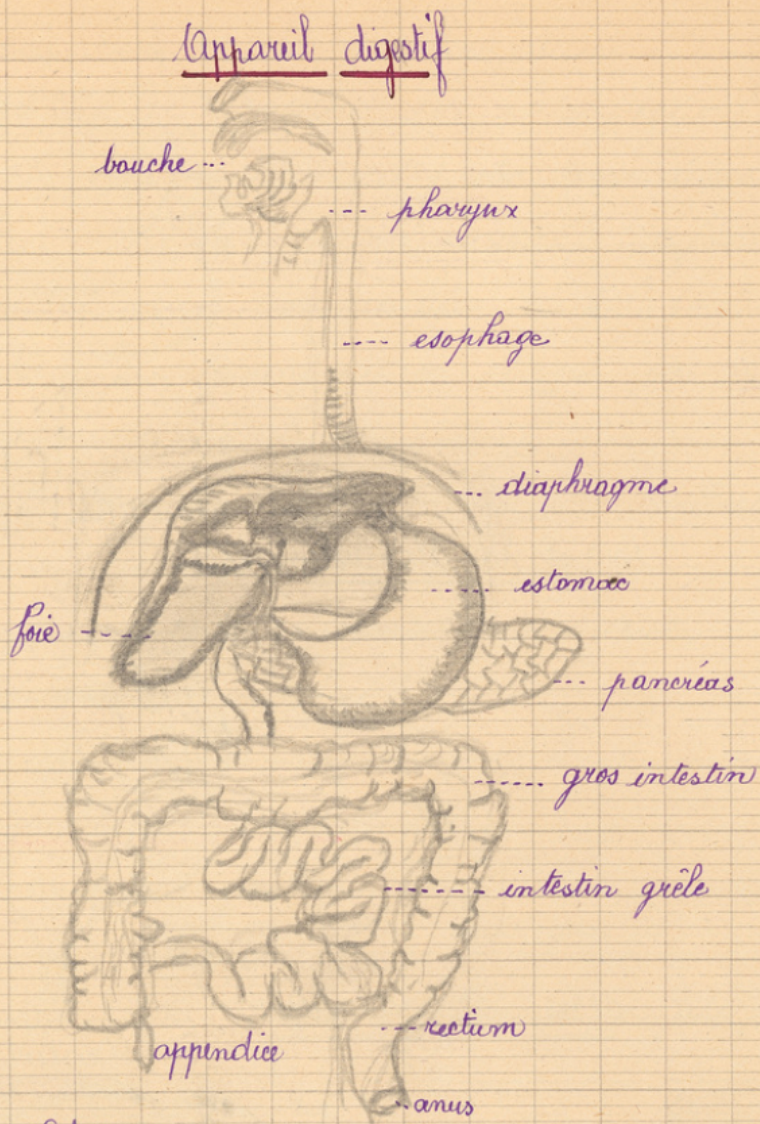 Appareil digestif
bouche
pharynx
esophage
diaphragme
estomac
foie
pancréas
gros intestin
intestin grêle
rectum
appendice
anus